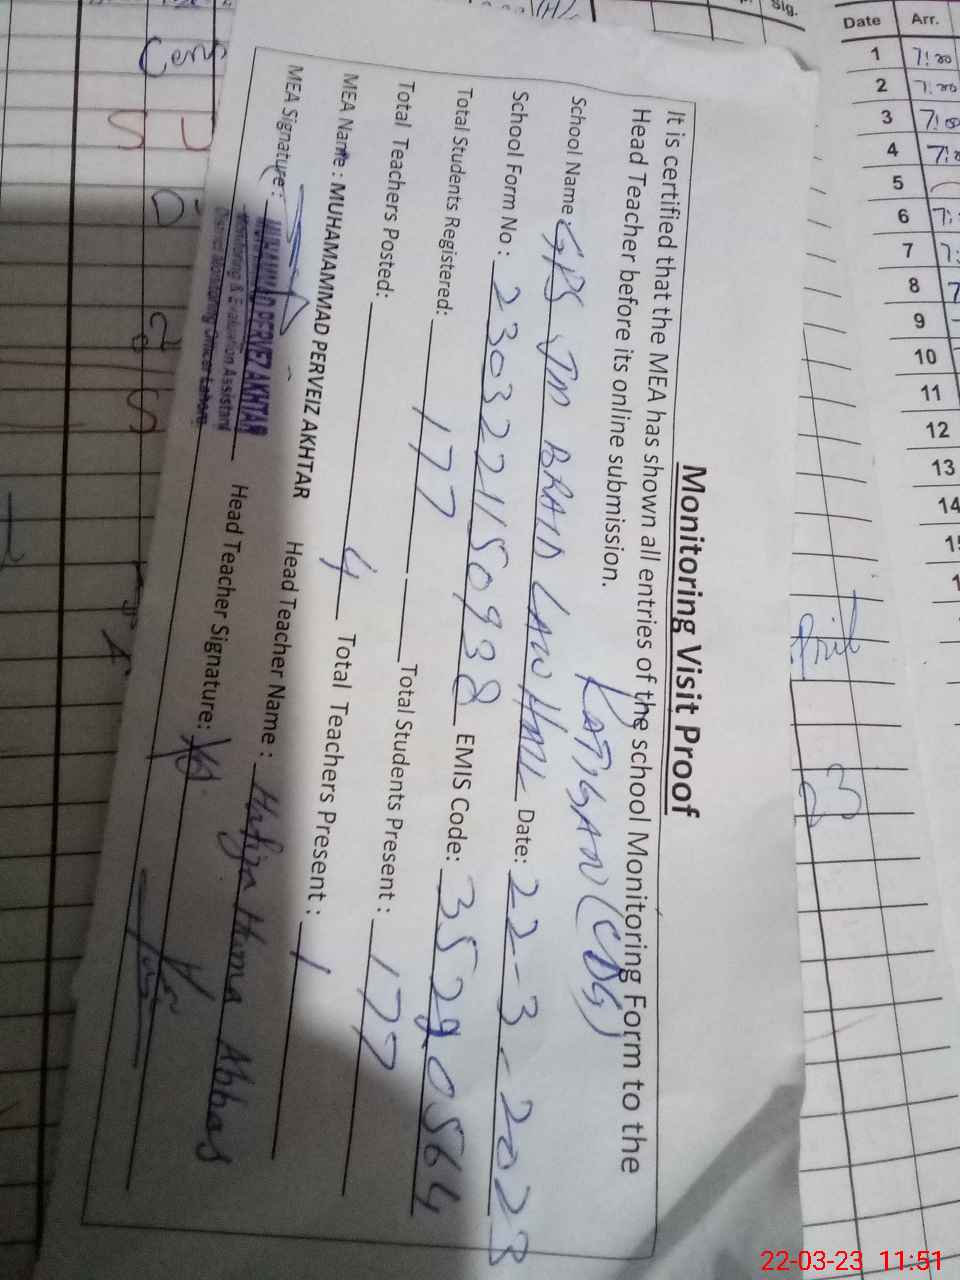 Monitoring Visit Proof
It is certified that the MEA has shown all entries of the school Monitoring Form to the
Head Teacher before its online submission.
KATTGAN (CDG)
School Name : GPS JM BRAID LAW HALL Date: 22-3-2023
School Form No. : 2303221150938 EMIS Code: 35290564
Total Students Registered: 177 Total Students Present : 177
Total Teachers Posted: 4 Total Teachers Present : 1
MEA Name : MUHAMAMMAD PERVEIZ AKHTAR Head Teacher Name : Hafiza Huma Abbas
MEA Signature : Head Teacher Signature:
MUHAMMAD PERVEZ AKHTAR
Monitoring & Evaluation Assistant
District Monitoring Officer Lahore
Sig.
Date Arr.
1 7:20
2 7:20
3
4
5
6
7
8
9
10
11
12
13
14
22-03-23 11:51